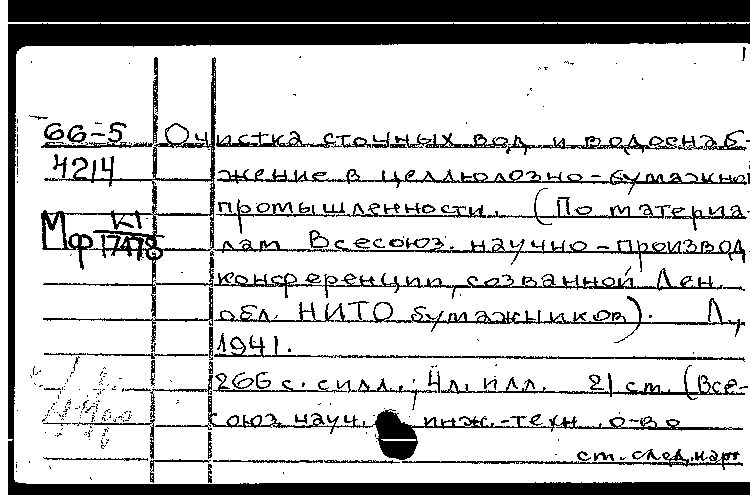 66-5 Очистка сточных вод и водоснаб-
4214 жение в целлюлозно-бумажной
промышленности. (По материа-
Мф К1/17478 лам Всесоюз. научно-производ.
конференции, созванной Лен.
обл. НИТО бумажников). Л.,
1941.
266 с. с илл.; 4 л. илл. 21 см. (Все-
союз. науч. инж.-техн. о-во
см. след. карт